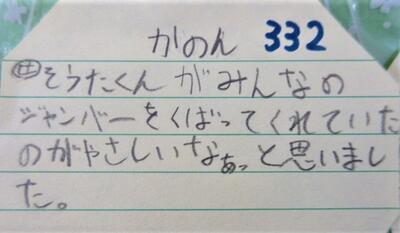 かのん 332
㊉そうたくんがみんなの
ジャンバーをくばってくれていた
のがやさしいなぁっと思いまし
た。